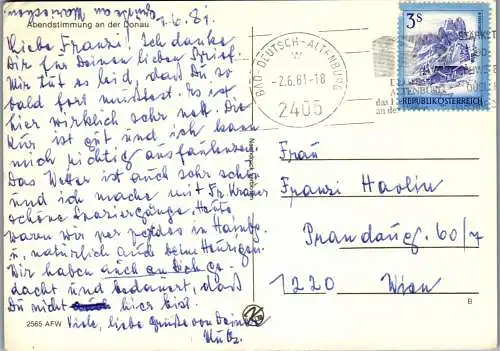 1.6.81.
Abendstimmung an der Donau
Liebe Franzi! Ich danke
Dir für Deinen lieben Brief.
Mir tut es leid, daß Du so
bald fort mußtest. Es ist
hier wirklich sehr nett. Die
Kur ist gut und ich kann
mich richtig ausfaulenzen.
Das Wetter ist auch sehr schön
und ich mache mit Fr. Kramer
schöne Spaziergänge. Heute
waren wir per pedes in Hainbg.
u. natürlich auch beim Heurigen.
Wir haben auch an Dich ge-
dacht und bedauert, daß
Du nicht hier bist.
Viele, liebe Grüße von Deiner
2565 AFW
BAD DEUTSCH-ALTENBURG
-2.6.81-18
2405
3S
REPUBLIK ÖSTERREICH
Frau
Franzi
Prandaug. 60/7
1220 Wien
B